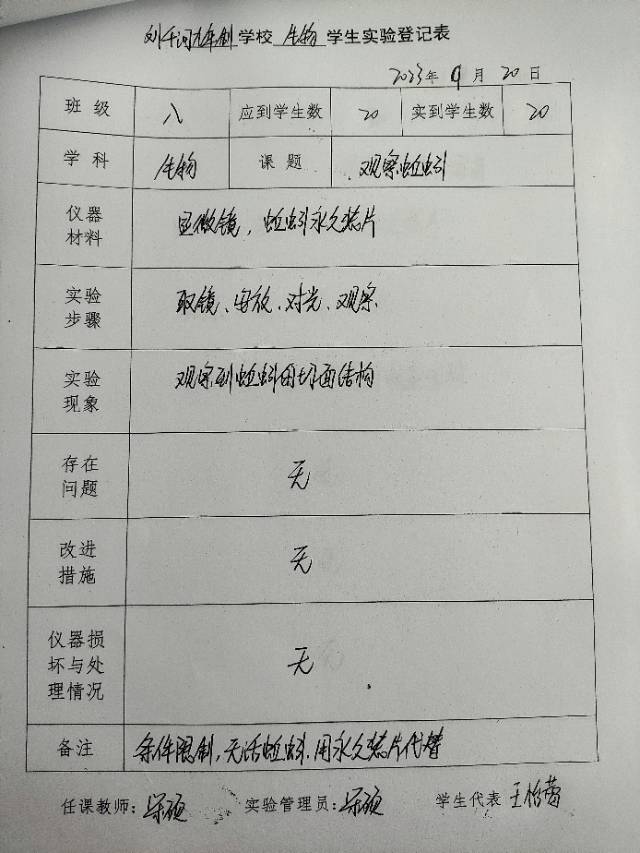 刘千河九年制学校 生物 学生实验登记表
2023年 9 月 20 日
班级 八 应到学生数 20 实到学生数 20
学科 生物 课题 观察蚯蚓
仪器材料 显微镜，蚯蚓永久装片
实验步骤 取镜、安放、对光、观察
实验现象 观察到蚯蚓的切面结构
存在问题 无
改进措施 无
仪器损坏与处理情况 无
备注 条件限制，无活蚯蚓，用永久装片代替
任课教师： 实验管理员： 学生代表 王怡蕾